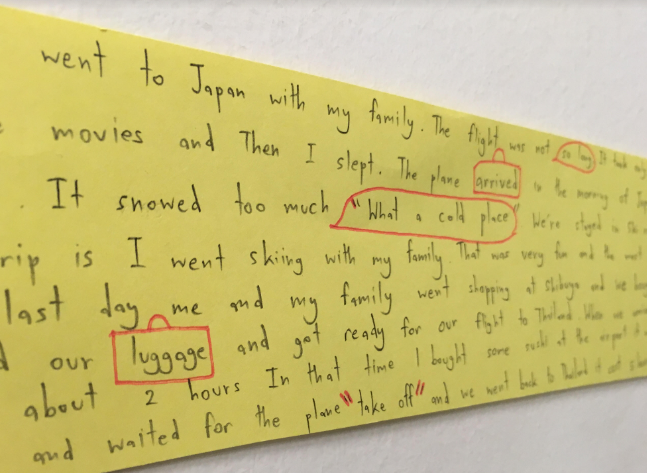 went to Japan with my family. The flight was not so long It took only
movies and Then I slept. The plane arrived in the morning of
. It snowed too much "What a cold place" We're stayed in
rip is I went skiing with my family. That was very fun and the most
last day me and my family went shopping at shibuya and we
our luggage and got ready for our flight to Thailand. When we
about 2 hours In that time I bought some sushi at the airport it
and waited for the plane "take off" and we went back to Thailand it cost